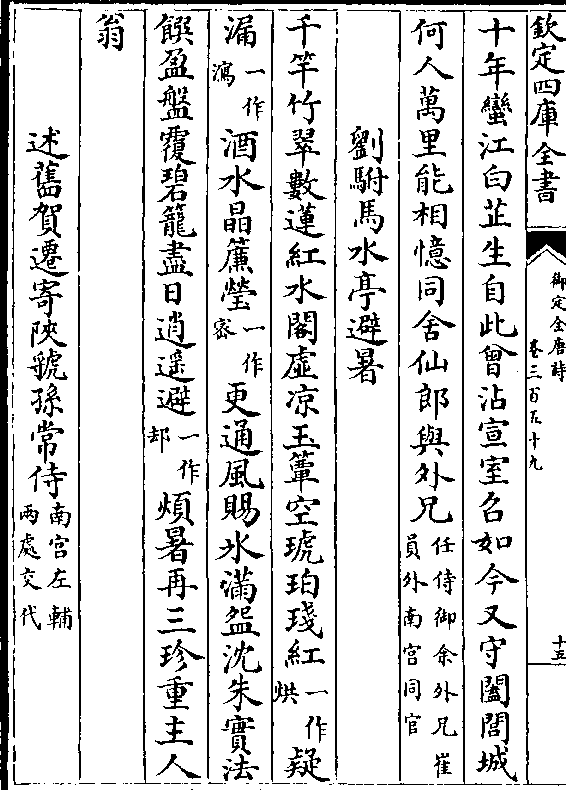 欽定四庫全書
御定全唐詩
卷三百五十九
十五
十年蠻江白芷生自此曾沾宣室召如今又守闔閭城
何人萬里能相憶同舍仙郎與外兄任侍御余外兄崔員外南宫同官
劉駙馬水亭避暑
千竿竹翠數蓮紅水閣虛凉玉簟空琥珀琖紅一作烘疑
漏一作瀉酒水晶簾瑩一作宻更通風賜氷滿盌沈朱實法
饌盈盤覆碧籠盡日逍遥避一作却煩暑再三珍重主人
翁
述舊賀遷寄陜虢孫常侍南宫左輔兩處交代